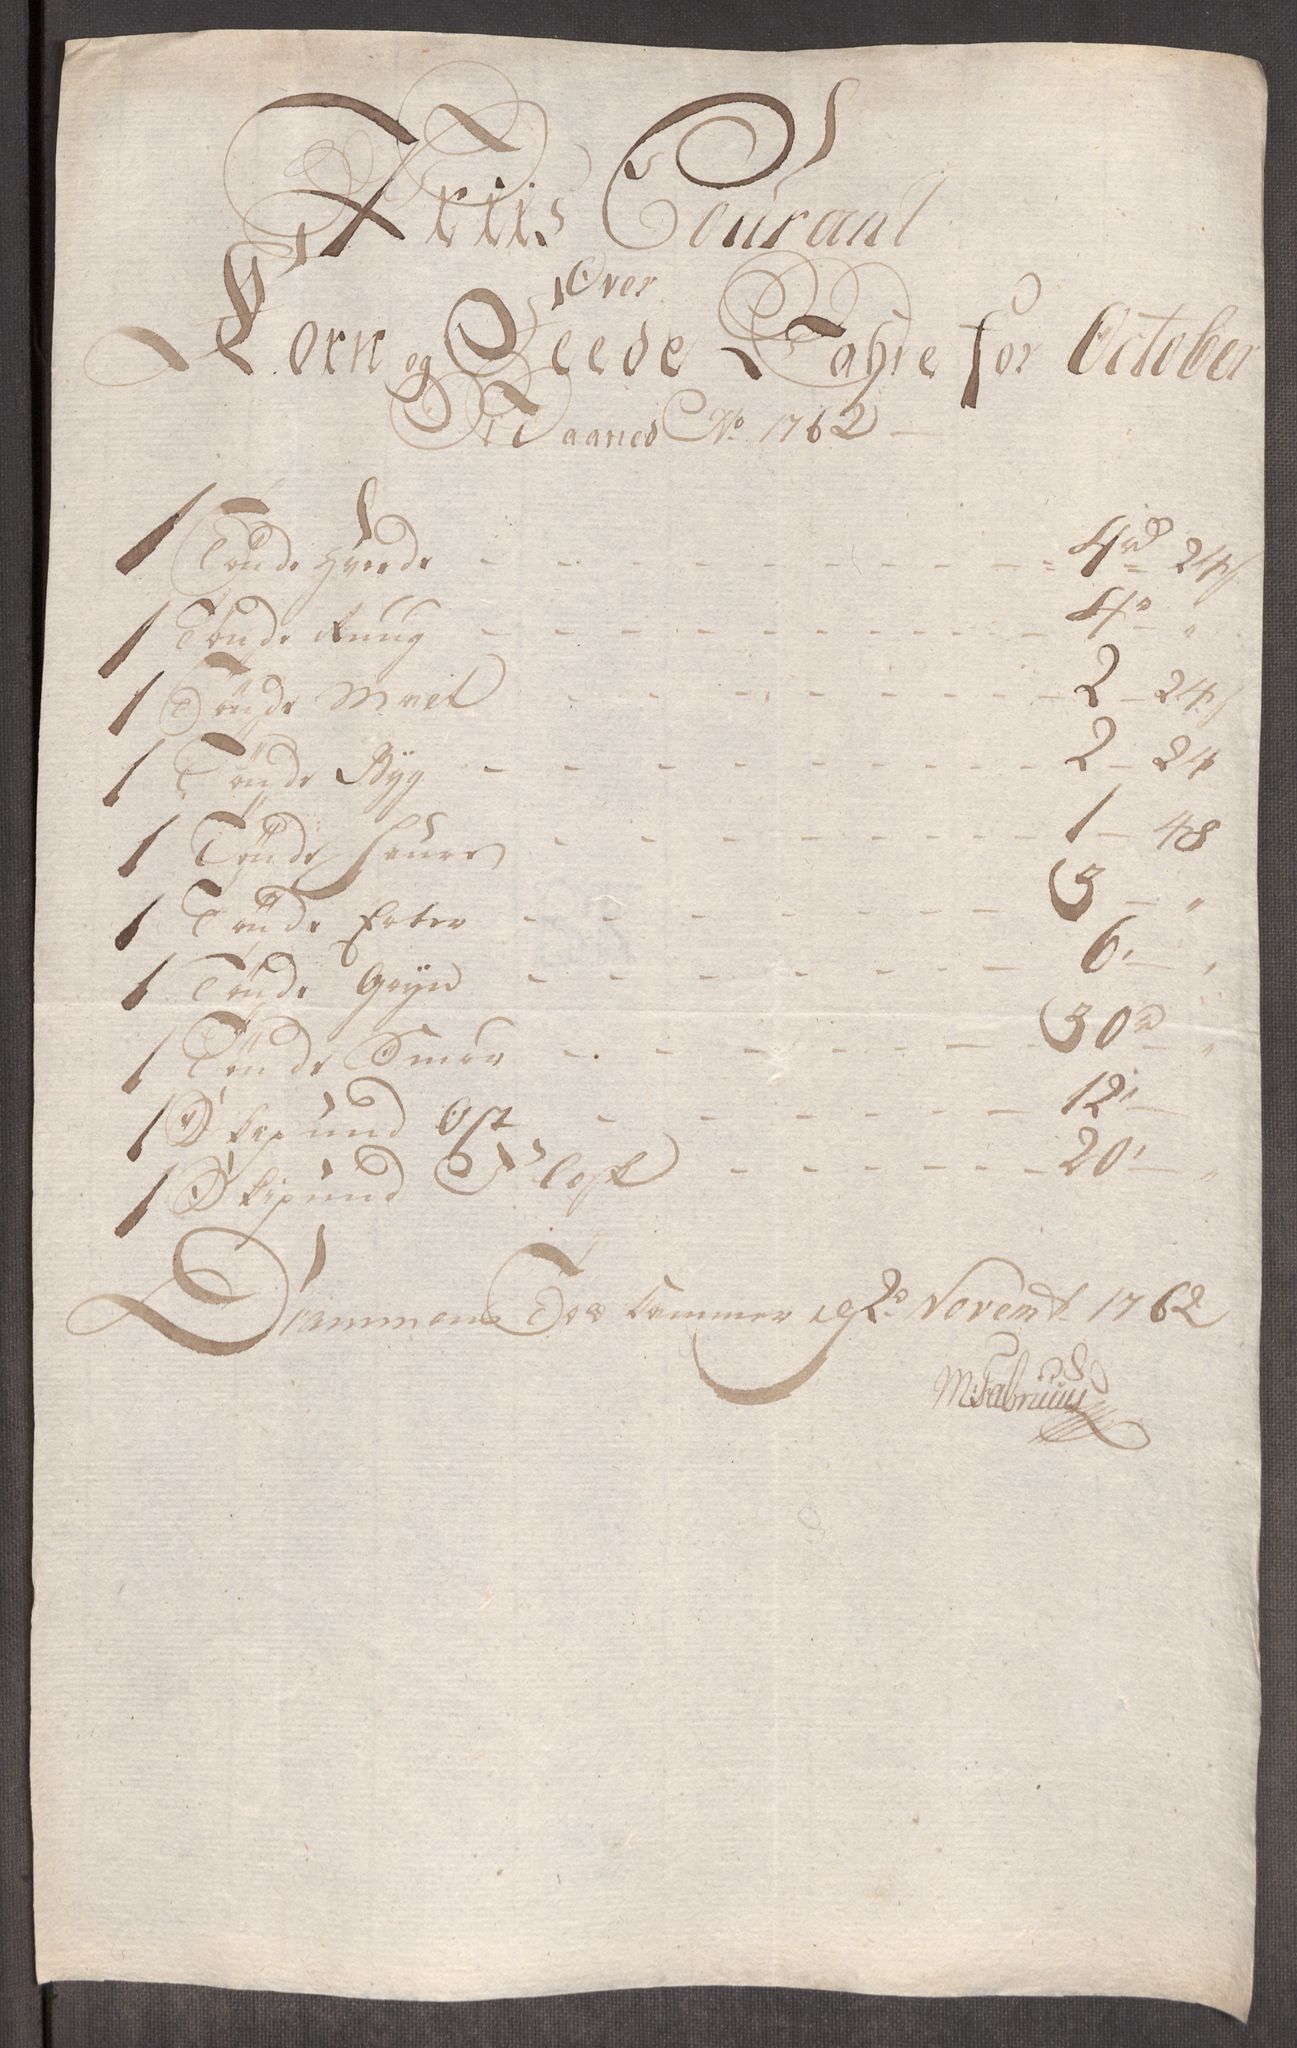 Priis Courant
Over
Korn og Feede Vahre for October
Maaned No 1762
1 Tønde Hvede 4 rd 24 s
1 Tønde Ruug 4 "
1 Tønde Malt 2 24 s
1 Tønde Byg 2 24
1 Tønde Haure 1 48
1 Tønde Erter 3 "
1 Tønde Gryn 6 "
1 Tønde Smør 30 "
1 Skipund Ost 12
1 Skipund Flesk 20 "
Drammens Told Cammer 2 Novemb 1762
M: Fabriuus